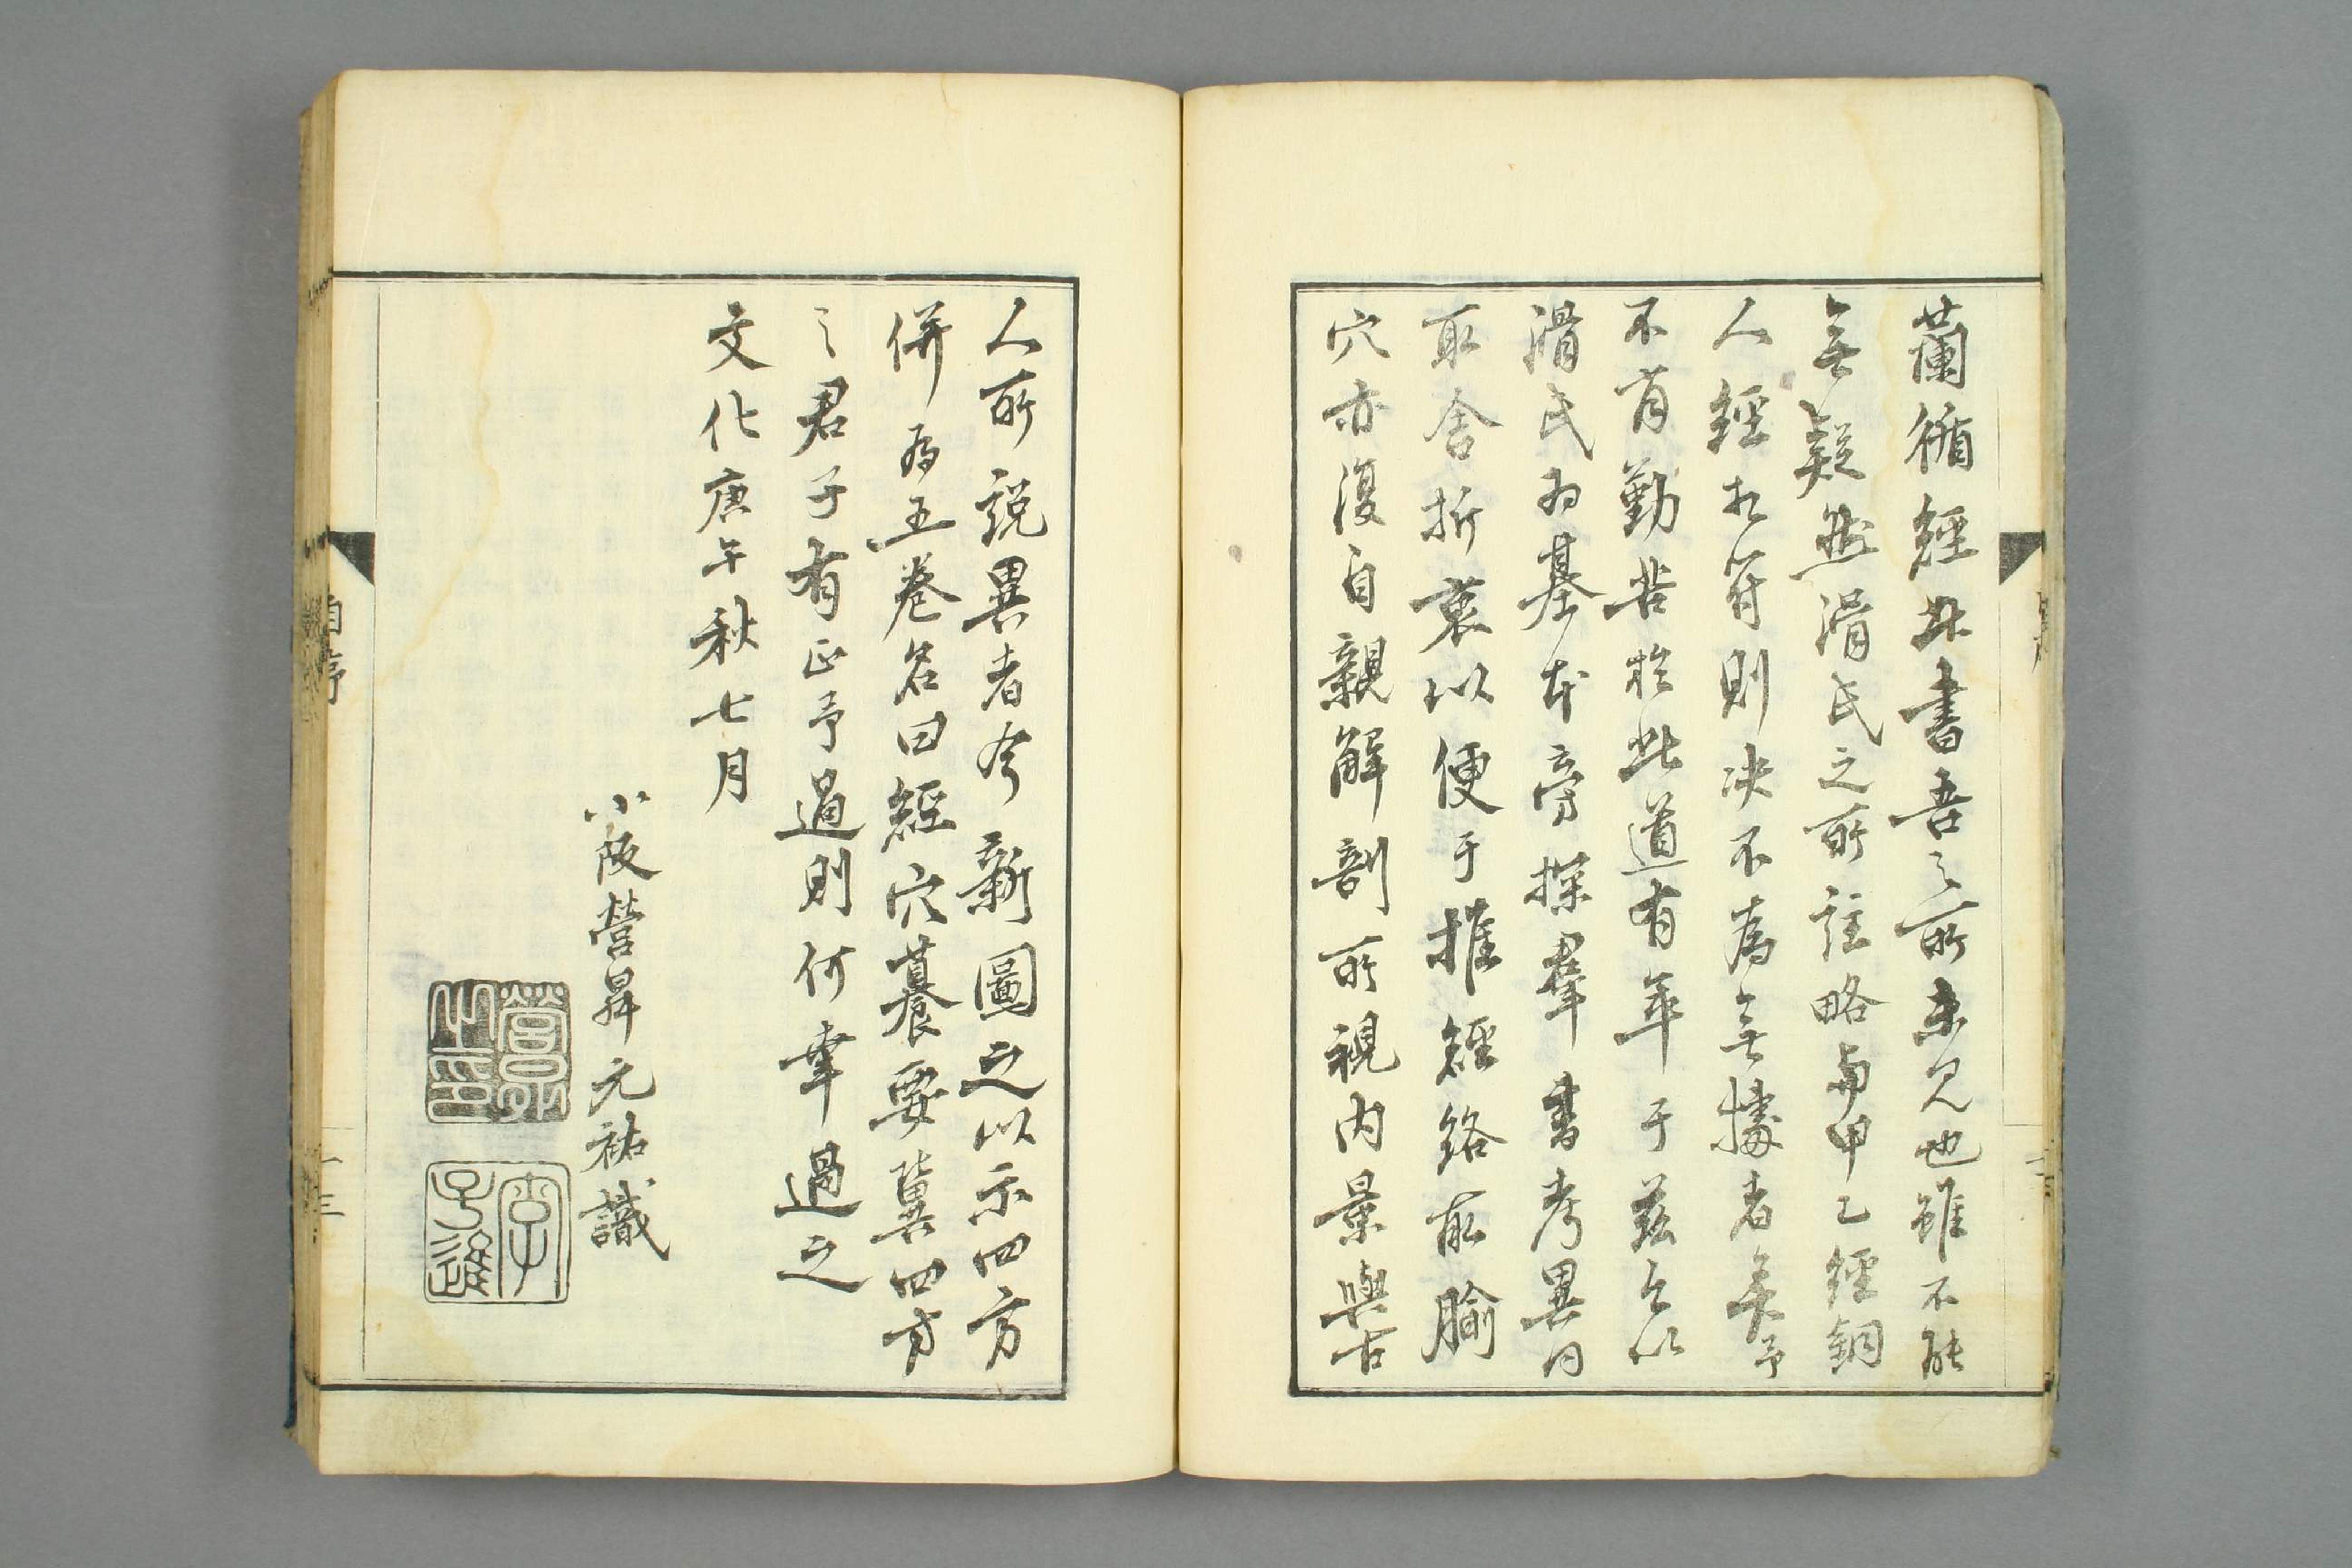 蘭循經此書吾之所未見也雖不能
無疑然滑氏之所註略與甲乙經銅
人經相符則決不為無據者矣予
不肖勤苦於此道有年于茲今以
滑氏為基本旁探羣書考異同
取舍折衷以便于推經絡取腧
穴亦復自親解剖所視內景與古
人所說異者今新圖之以示四方
併為五卷名曰經穴纂要冀四方
之君子有正予過則何幸過之
文化庚午秋七月
小阪營昇元祐識
自序
十三